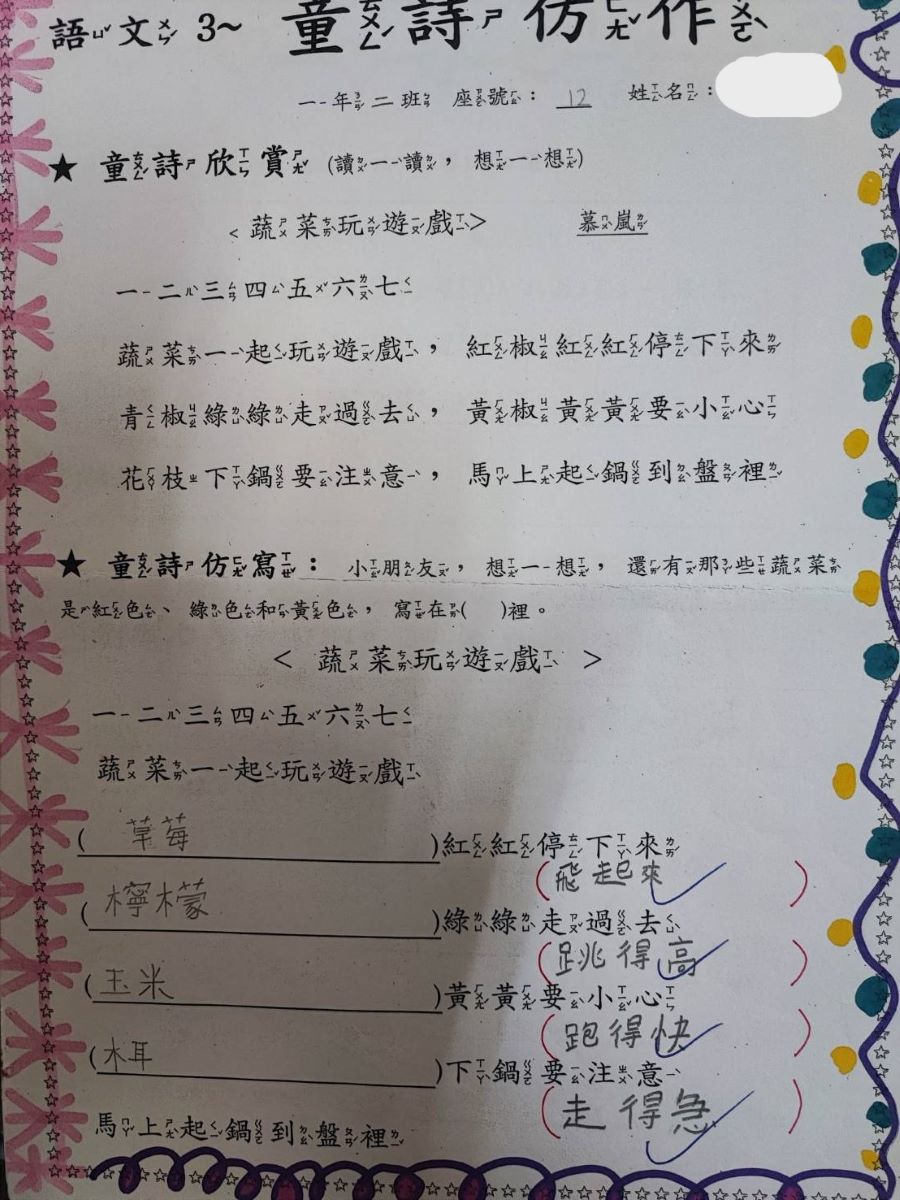 語文3~ 童詩仿作
一年二班 座號：12 姓名：
★ 童詩欣賞 (讀一讀，想一想)
<蔬菜玩遊戲> 慕嵐
一二三四五六七
蔬菜一起玩遊戲，紅椒紅紅停下來
青椒綠綠走過去，黃椒黃黃要小心
花枝下鍋要注意，馬上起鍋到盤裡
★ 童詩仿寫：小朋友，想一想，還有那些蔬菜
是紅色、綠色和黃色，寫在( )裡。
< 蔬菜玩遊戲 >
一二三四五六七
蔬菜一起玩遊戲
(草莓)紅紅停下來
(飛起來)
(檸檬)綠綠走過去
(跳得高)
(玉米)黃黃要小心
(跑得快)
(木耳)下鍋要注意
(走得急)
馬上起鍋到盤裡